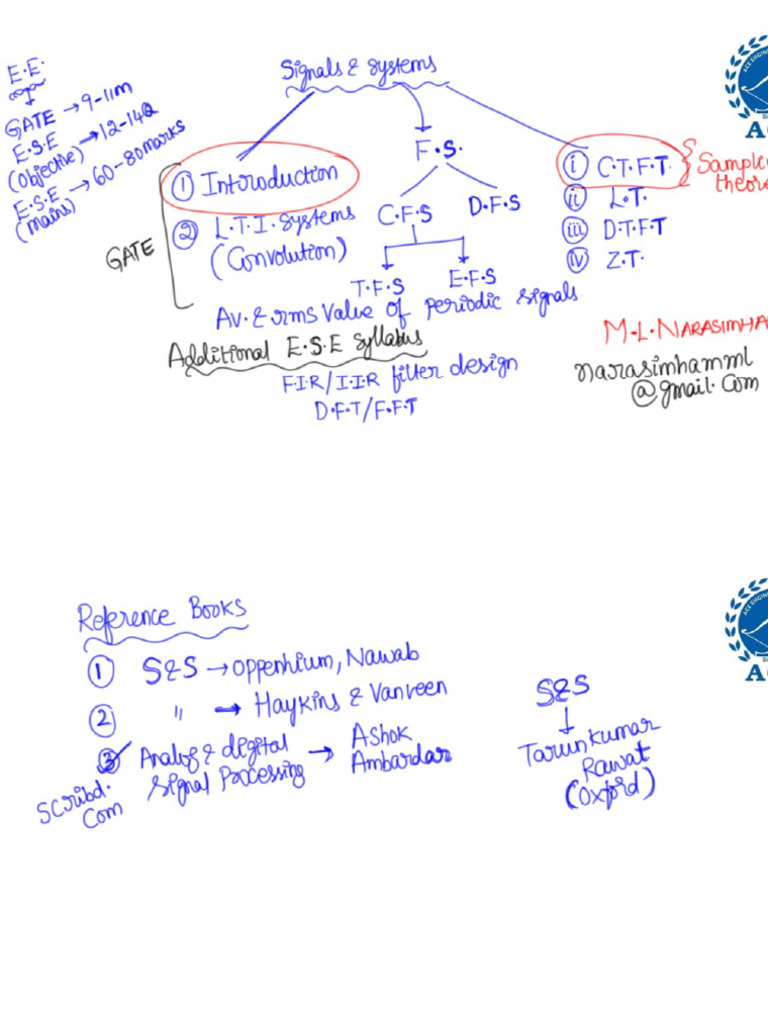 Signals & Systems
E.E.
GATE → 9-11m
E.S.E → 12-14Q
(Objective)
E.S.E → 60-80marks
(mains)
GATE
① Introduction
② L.T.I. Systems
(Convolution)
F.S.
C.F.S D.F.S
T.F.S E.F.S
Av. & rms value of periodic signals
ⓘ C.T.F.T.
ⓘⓘ L.T.
ⓘⓘⓘ D.T.F.T
ⓘⓥ Z.T.
Additional E.S.E Syllabus
F.I.R/I.I.R filter design
D.F.T/F.F.T
narasimhamml
@gmail.com
Reference Books
① S&S → Oppenhium, Nawab
② " → Haykins & Vanveen
③ Analog & digital → Ashok
Signal Processing Ambardar
Scribd.
Com
S&S
↓
Tarunkumar
Rawat
(Oxford)